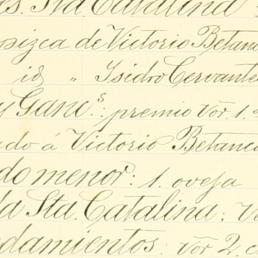 s. Sta Catalina
pizca de Victorio Betanc
id " Isidro Cervante
y Ganc.s: premio vor 1.
do á Victorio Betanc
do menor: 1. oveja
la Sta. Catalina: v
ndamientos: vor 2. c